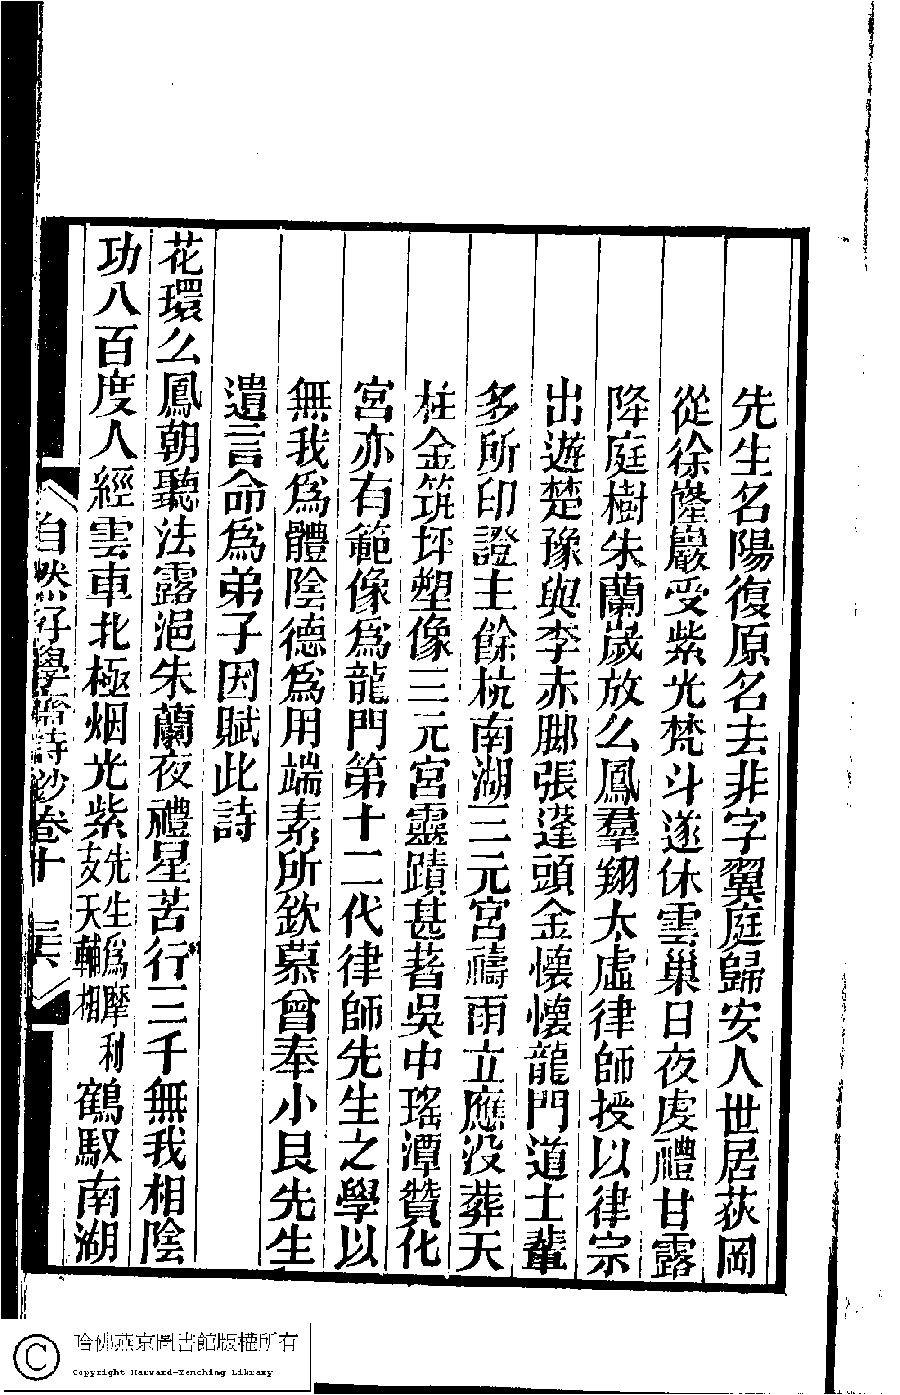 先生名陽復原名去非字翼庭歸安人世居荻岡
從徐隆巖受紫光梵斗遂休雲巢日夜虔禮甘露
降庭樹朱蘭歲放么鳳羣翔太虛律師授以律宗
出遊楚豫與李赤脚張蓬頭金懷懷龍門道士輩
多所印證主餘杭南湖三元宮禱雨立應没葬天
柱金筑坪塑像三元宮靈蹟甚著吳中瑤潭贊化
宮亦有範像為龍門第十二代律師先生之學以
無我為體陰德為用端素所欽慕曾奉小艮先生
遺言命為弟子因賦此詩
花環么鳳朝聽法露浥朱蘭夜禮星苦行三千無我相陰
功八百度人經雲車北極烟光紫先生為摩利支天輔相鶴馭南湖
自然好學齋詩鈔卷十 三六
哈佛燕京圖書館版權所有
Copyright Harvard-Yenching Library